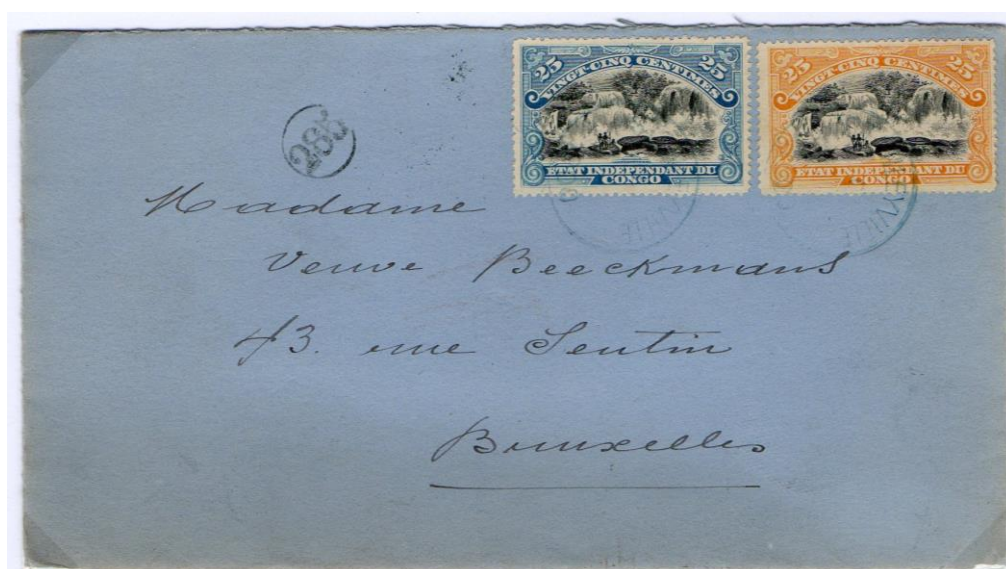 25 VINGT-CINQ CENTIMES 25
ETAT INDEPENDANT DU
CONGO
25 VINGT-CINQ CENTIMES 25
ETAT INDEPENDANT DU
CONGO
285
Madame
Veuve Beeckmans
43. rue Sentin
Bruxelles